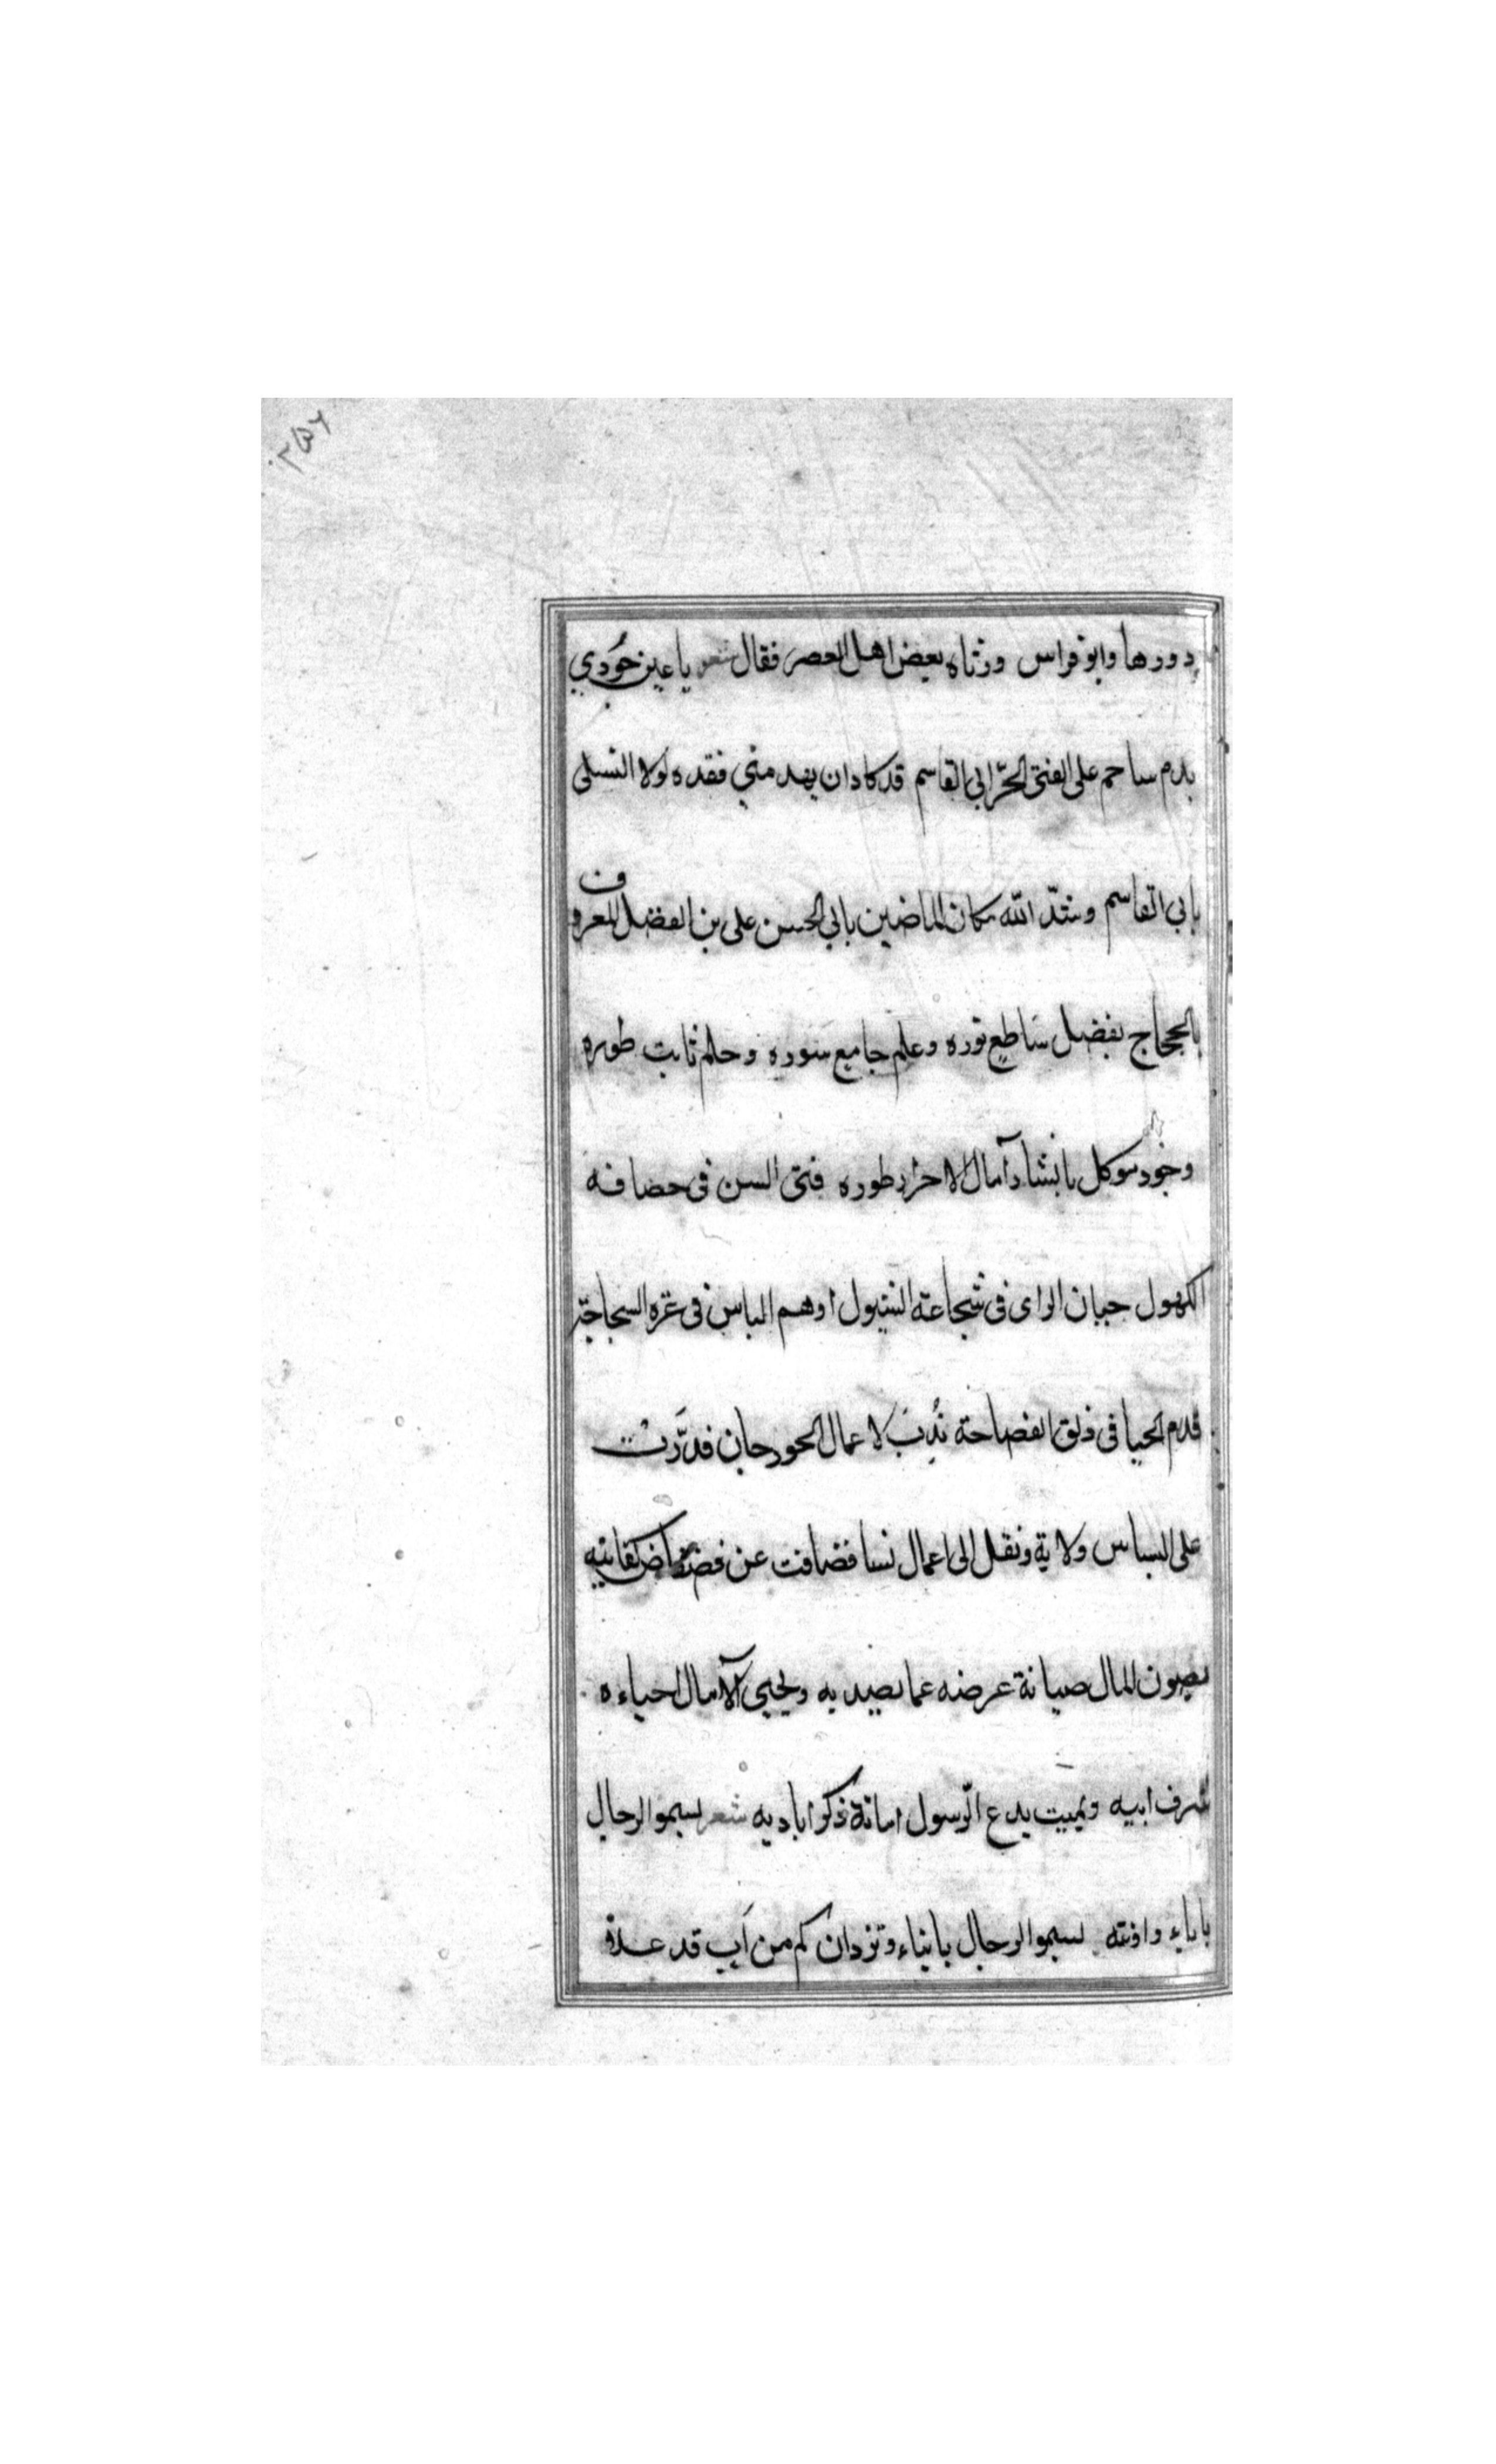 ٢٥٦
دورها وابو فراس ورثاه بعض اهل العصر فقال شعر يا عين جُودي
بدم ساجم على الفتى الحرّ ابى القاسم قد كاد ان يهدمني فقده لولا التسلى
بابى القاسم وسّد الله مكان الماضين بابى الحسن على بن الفضل المعروف
بالحجاج بفضل ساطع نوره وعلم جامع سوره وحلم ثابت طوره
وجود موكل بانشاد آمال الاحرار طوره فتى السن فى حصافه
الكهول جبان الراى فى شجاعة السيول اوهم الباس فى غره السجاجة
قدم الحيا فى ذلق الفصاحة نُدِبَ لاعمال الجورجان فدرَّت
على السياس ولاية ونقل الى اعمال نسا فضافت عن كفايته
يصون المال صيانة عرضه عما يصديه ويحيى الآمال احياءه
شرف ابيه ويميت بدع الرسول امانة ذكر اياديه شعر تسمو الرجال
باباء واونته تسمو الرجال بابناء وتزدان كم من اَب قد علا